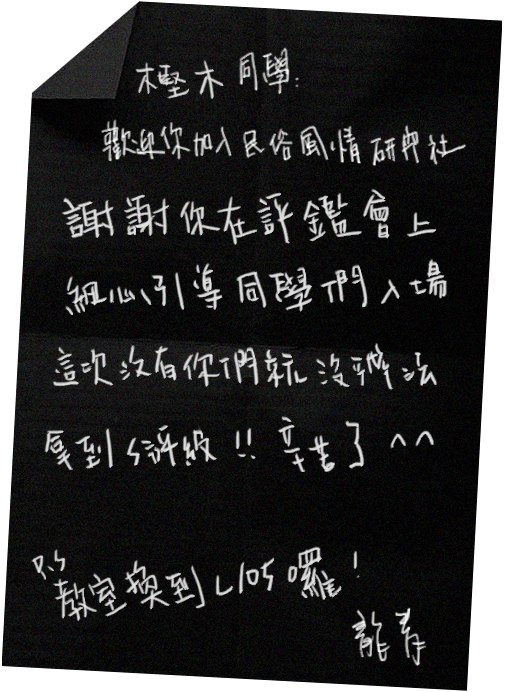 樫木同學:
歡迎你加入民俗風情研究社
謝謝你在評鑑會上
細心引導同學們入場
這次沒有你們就沒辦法
拿到S評級!! 辛苦了^^
P.S
教室換到L105囉!
龍青